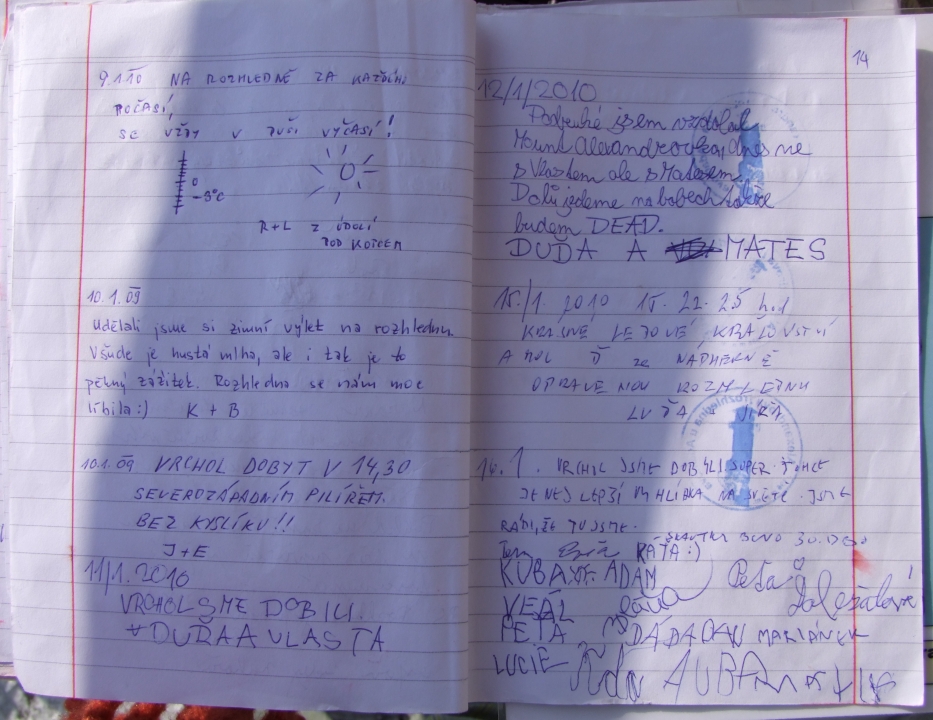 9.1.10 NA ROZHLEDNĚ ZA KAŽDÉHO
POČASÍ,
SE VŽDY V DUŠI VYČASÍ!
0
-3°C
R+L Z ÚDOLÍ
POD KOPCEM
10.1.09
Udělali jsme si zimní výlet na rozhlednu.
Všude je hustá mlha, ale i tak je to
pěkný zážitek. Rozhledna se nám moc
líbila:) K + B
10.1.09 VRCHOL DOBYT V 14,30
SEVEROZÁPADNÍM PILÍŘEM.
BEZ KYSLÍKU!!
J+E
11/1.2010
VRCHOL SME DOBILI.
DUĎA A VLASTA
14
12/1/2010
Podruhé jsem vzdolal
Mount Alexandrovka, dnes ne
s Vlastem ale s Matesem.
Dolů jedeme na bobech takže
budem DEAD.
DUĎA A MATES
15./1. 2010 15.22-25 h.
KRÁSNÉ LEDOVÉ KRÁLOVSTVÍ
A HOLD ZE NÁDHERNĚ
OPRAVENOU ROZHLEDNU
LUĎA + JIŘA
16.1. VRCHOL JSME DOBYLI SUPER. TOHLE
JE NEJLEPŠÍ VYHLÍDKA NA SVĚTĚ. JSME
RÁDI, ŽE TU JSME.
KÁŤA:)
KUBA ADAM Peťa
VEĂL
PEŤA DÁDA MARIÁNEK
LUCIE